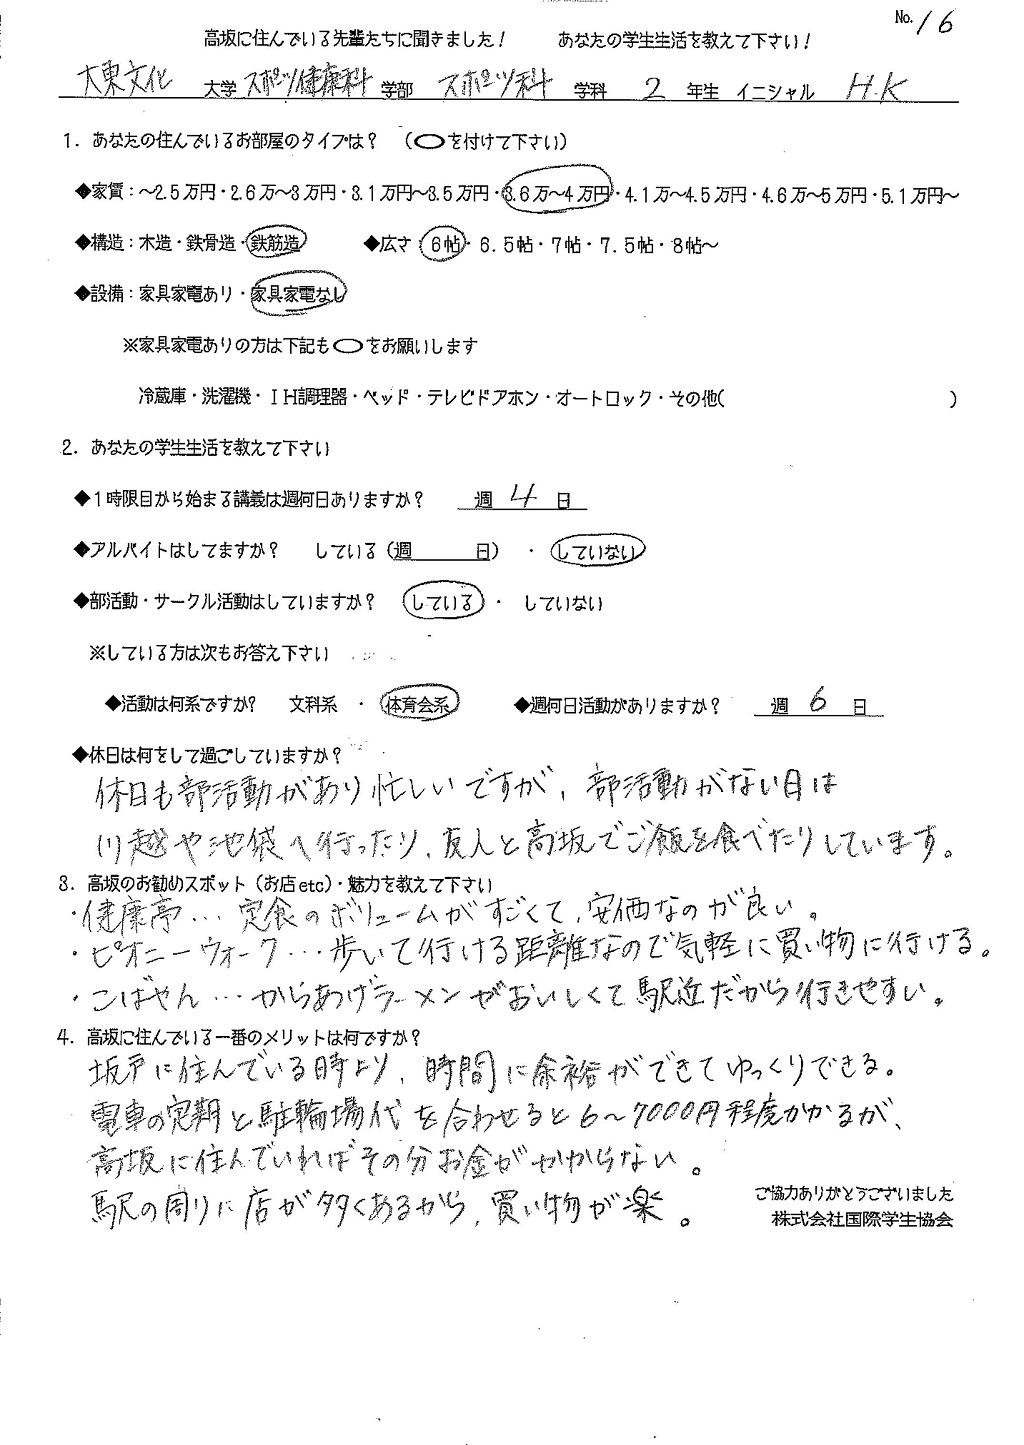 No. 16
高坂に住んでいる先輩たちに聞きました！　あなたの学生生活を教えて下さい！
大東文化 大学 スポーツ健康科 学部 スポーツ科 学科 2 年生 イニシャル H.K
1．あなたの住んでいるお部屋のタイプは？　（○を付けて下さい）
◆家賃：～2.5万円・2.6万～3万円・3.1万円～3.5万円・3.6万～4万円・4.1万～4.5万円・4.6万～5万円・5.1万円～
◆構造：木造・鉄骨造・鉄筋造　◆広さ：6帖・6.5帖・7帖・7.5帖・8帖～
◆設備：家具家電あり・家具家電なし
※家具家電ありの方は下記も○をお願いします
冷蔵庫・洗濯機・ＩＨ調理器・ベッド・テレビドアホン・オートロック・その他(　)
2．あなたの学生生活を教えて下さい
◆１時限目から始まる講義は週何日ありますか？　週 4 日
◆アルバイトはしてますか？　している（週　日）・していない
◆部活動・サークル活動はしていますか？　している・していない
※している方は次もお答え下さい
◆活動は何系ですか？　文科系・体育会系　◆週何日活動がありますか？　週 6 日
◆休日は何をして過ごしていますか？
休日も部活動があり忙しいですが、部活動がない日は
川越や池袋へ行ったり、友人と高坂でご飯を食べたりしています。
3．高坂のお勧めスポット（お店etc）・魅力を教えて下さい
・健康亭…定食のボリュームがすごくて、安価なのが良い。
・ピオニーウォーク…歩いて行ける距離なので気軽に買い物に行ける。
・こばやん…からあげラーメンがおいしくて駅近だから行きやすい。
4．高坂に住んでいる一番のメリットは何ですか？
坂戸に住んでいる時より、時間に余裕ができてゆっくりできる。
電車の定期と駐輪場代を合わせると6～7000円程度かかるが、
高坂に住んでいればその分お金がかからない。
駅の周りに店が多くあるから、買い物が楽。
ご協力ありがとうございました
株式会社国際学生協会